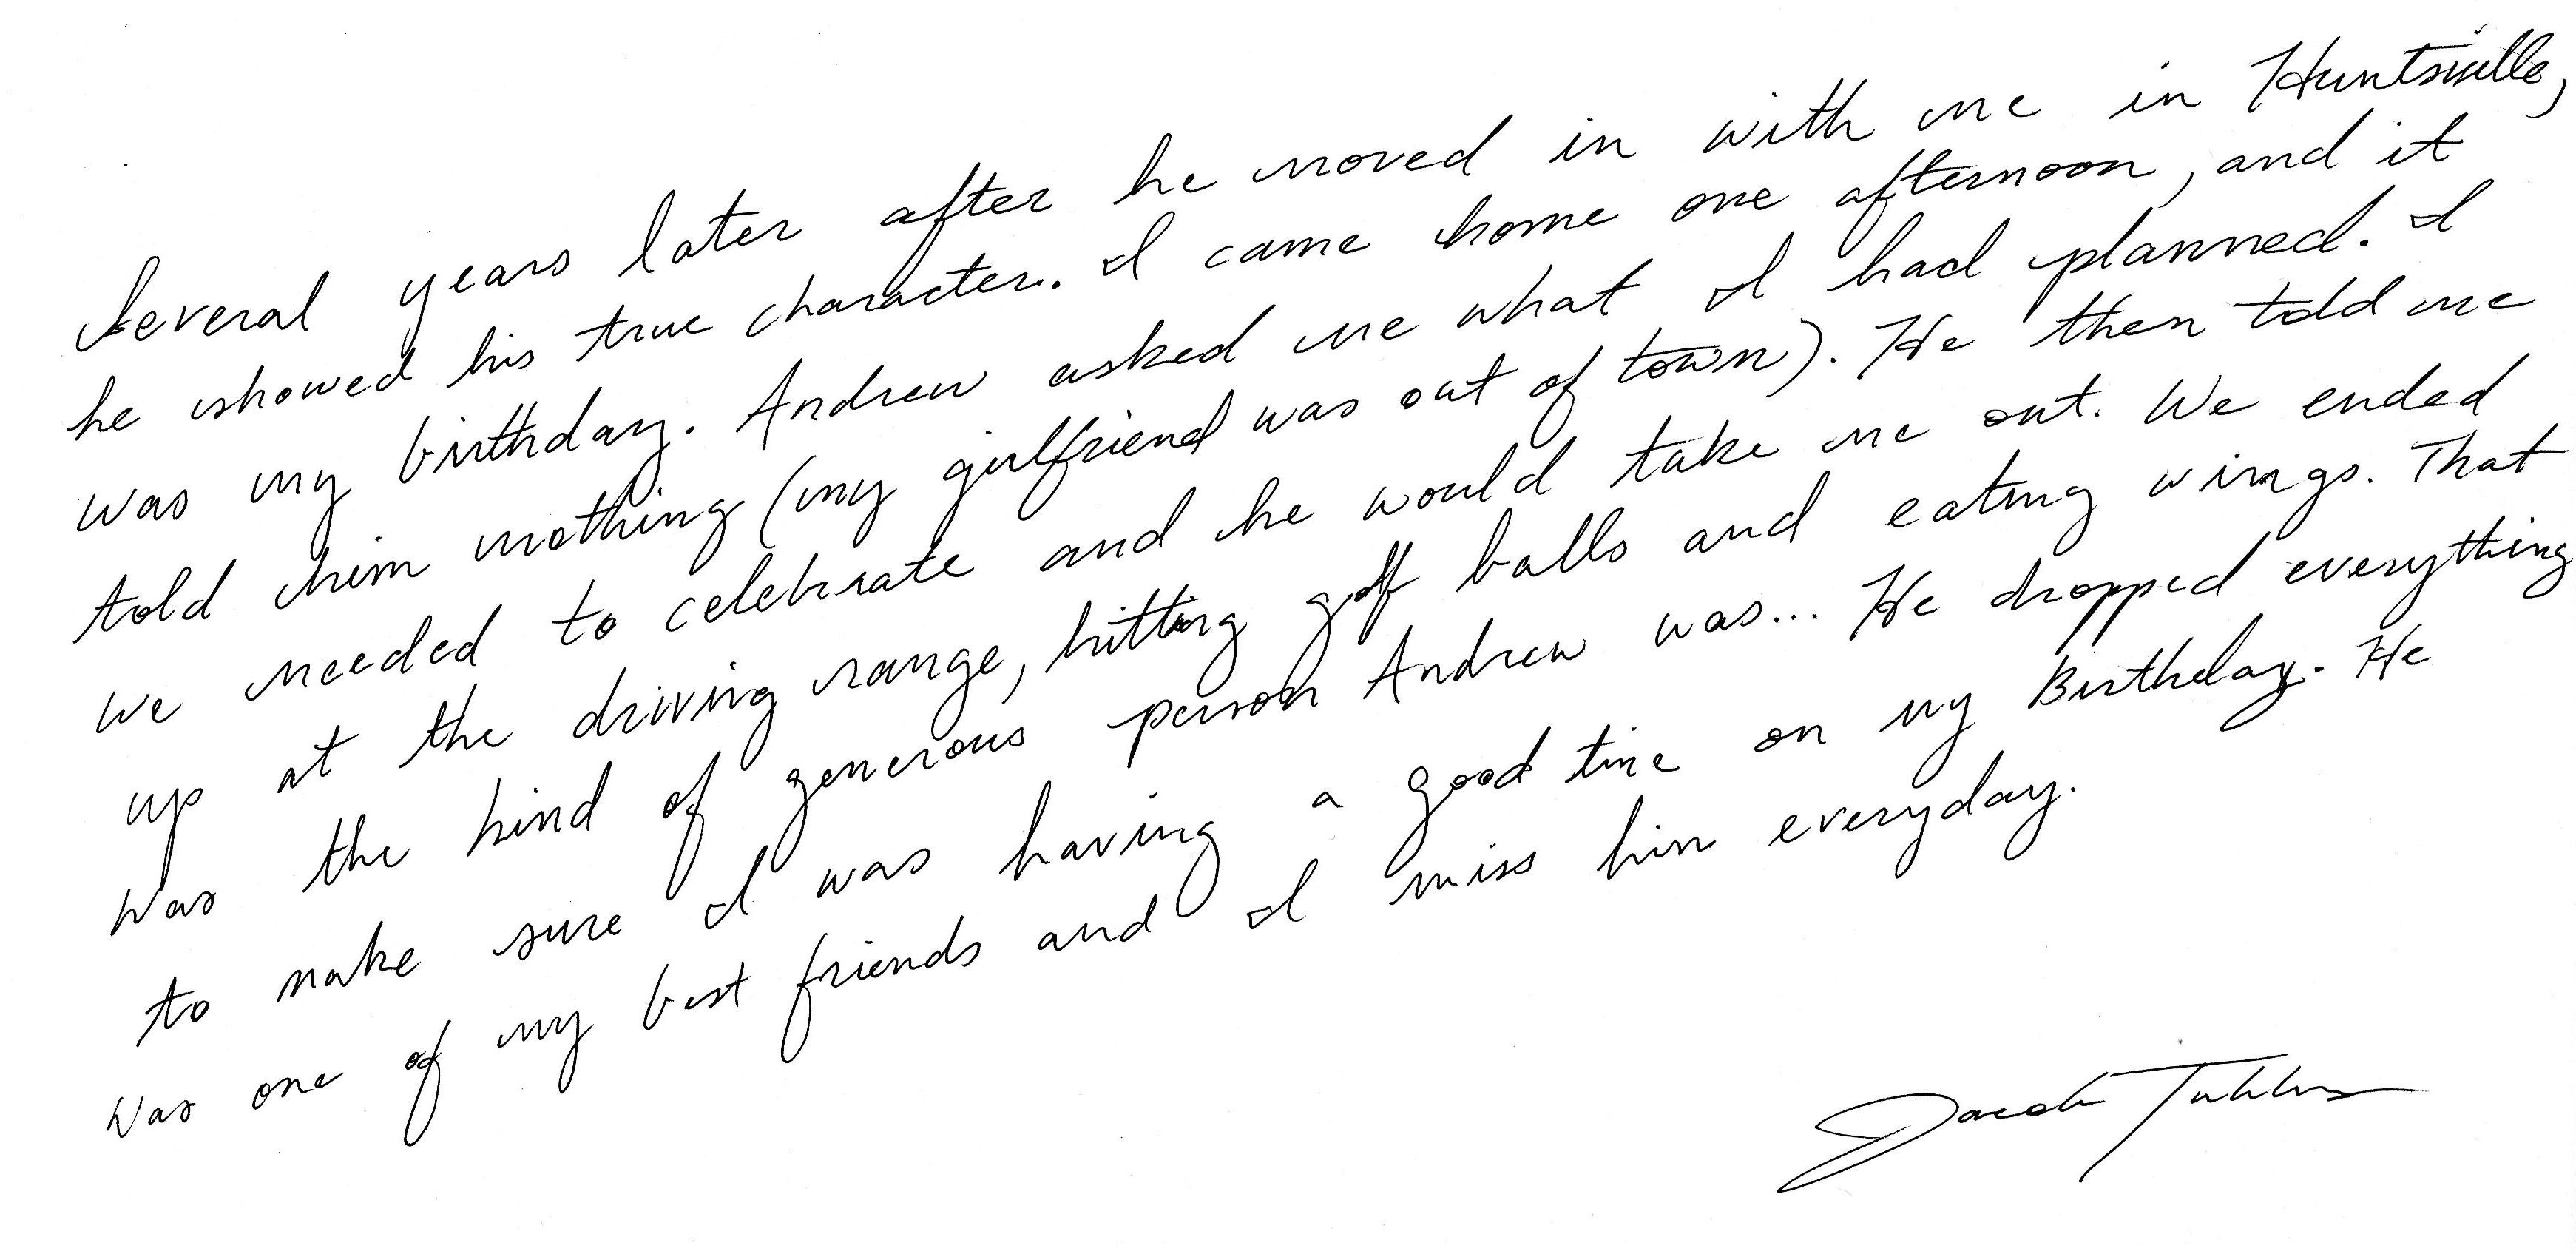 Several years later after he moved in with me in Huntsville,
he showed his true character. I came home one afternoon, and it
was my birthday. Andrew asked me what I had planned. I
told him nothing (my girlfriend was out of town). He then told me
we needed to celebrate and he would take me out. We ended
up at the driving range, hitting golf balls and eating wings. That
was the kind of generous person Andrew was... He dropped everything
to make sure I was having a good time on my Birthday. He
was one of my best friends and I miss him everyday.
Jacob